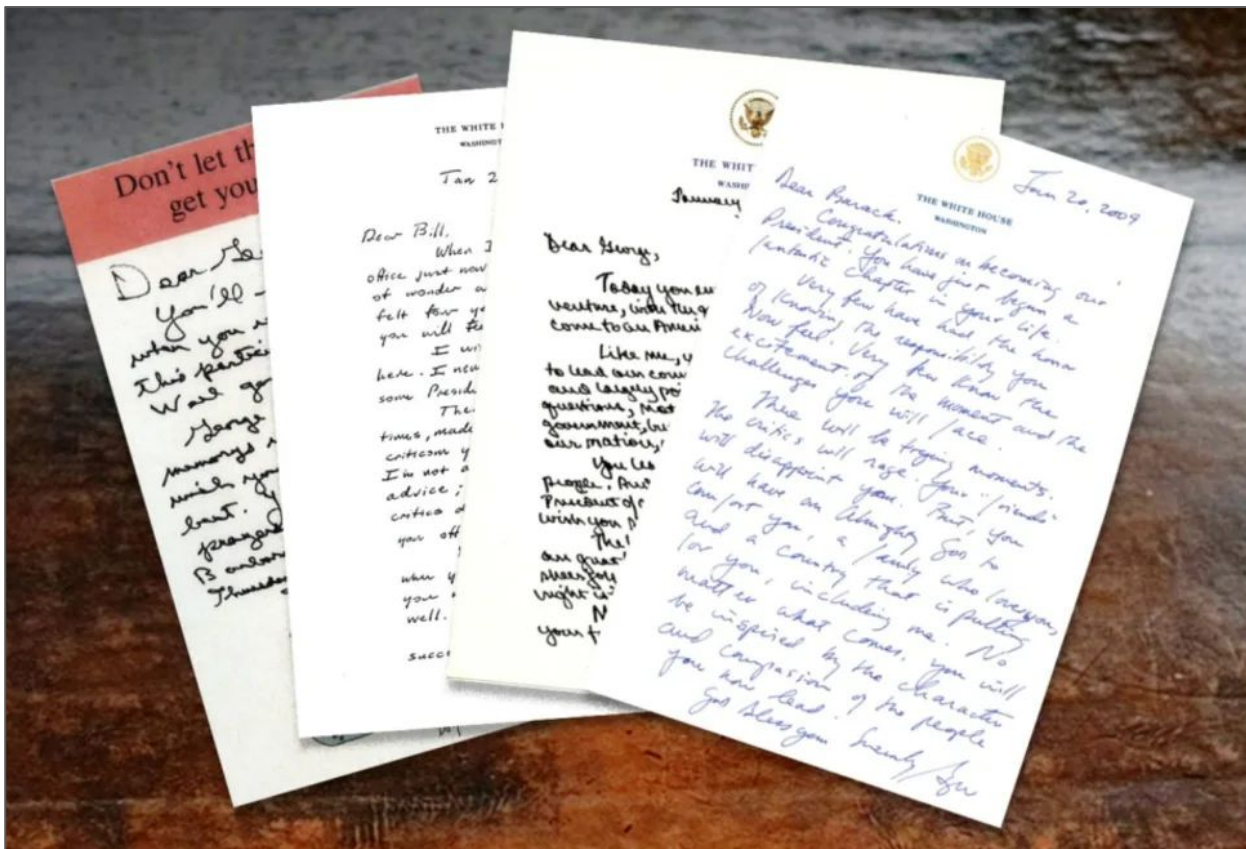 Don't let th
get you
Dear Ge
You'll
when you
this partic
Want
George
memorys
which you
bent. Y
prayers
Barbar
Thursday
THE WHITE H
WASHINGT
Jan 2
Dear Bill,
When I
office just now
of wonder a
felt four ye
you will fee
I wi
here. I nev
some Preside
The
times, made
criticism y
I'm not a
advice;
critics d
you off
when y
you
well.
succ
THE WHIT
WASH
January
Dear George,
Today you em
venture, with the g
come to an Ameri
Like me, y
to lead our coun
and largely po
questions, that
government, bu
our nation,
You lea
people. An
President of
wish you
The
are great
sheer joy
right is
N
your f
Jan 20, 2009
THE WHITE HOUSE
WASHINGTON
Dear Barack,
Congratulations on becoming our
President. You have just begun a
fantastic chapter in your life.
Very few have had the honor
of knowing the responsibility you
now feel. Very few know the
excitement of the moment and the
challenges you will face.
There will be trying moments.
The critics will rage. Your "friends"
will disappoint you. But, you
will have an Almighty God to
comfort you, a family who loves you,
and a country that is pulling
for you, including me. No
matter what comes, you will
be inspired by the character
and compassion of the people
you now lead.
God bless you.
Sincerely,